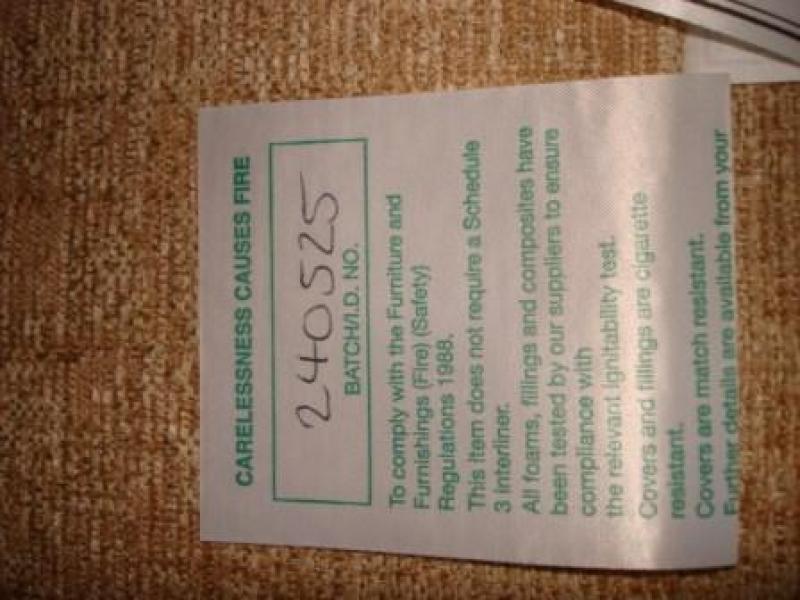 CARELESSNESS CAUSES FIRE
240525
BATCH/I.D. NO.
To comply with the Furniture and
Furnishings (Fire) (Safety)
Regulations 1988.
This item does not require a Schedule
3 interliner.
All foams, fillings and composites have
been tested by our suppliers to ensure
compliance with
the relevant ignitability test.
Covers and fillings are cigarette
resistant.
Covers are match resistant.
Further details are available from your